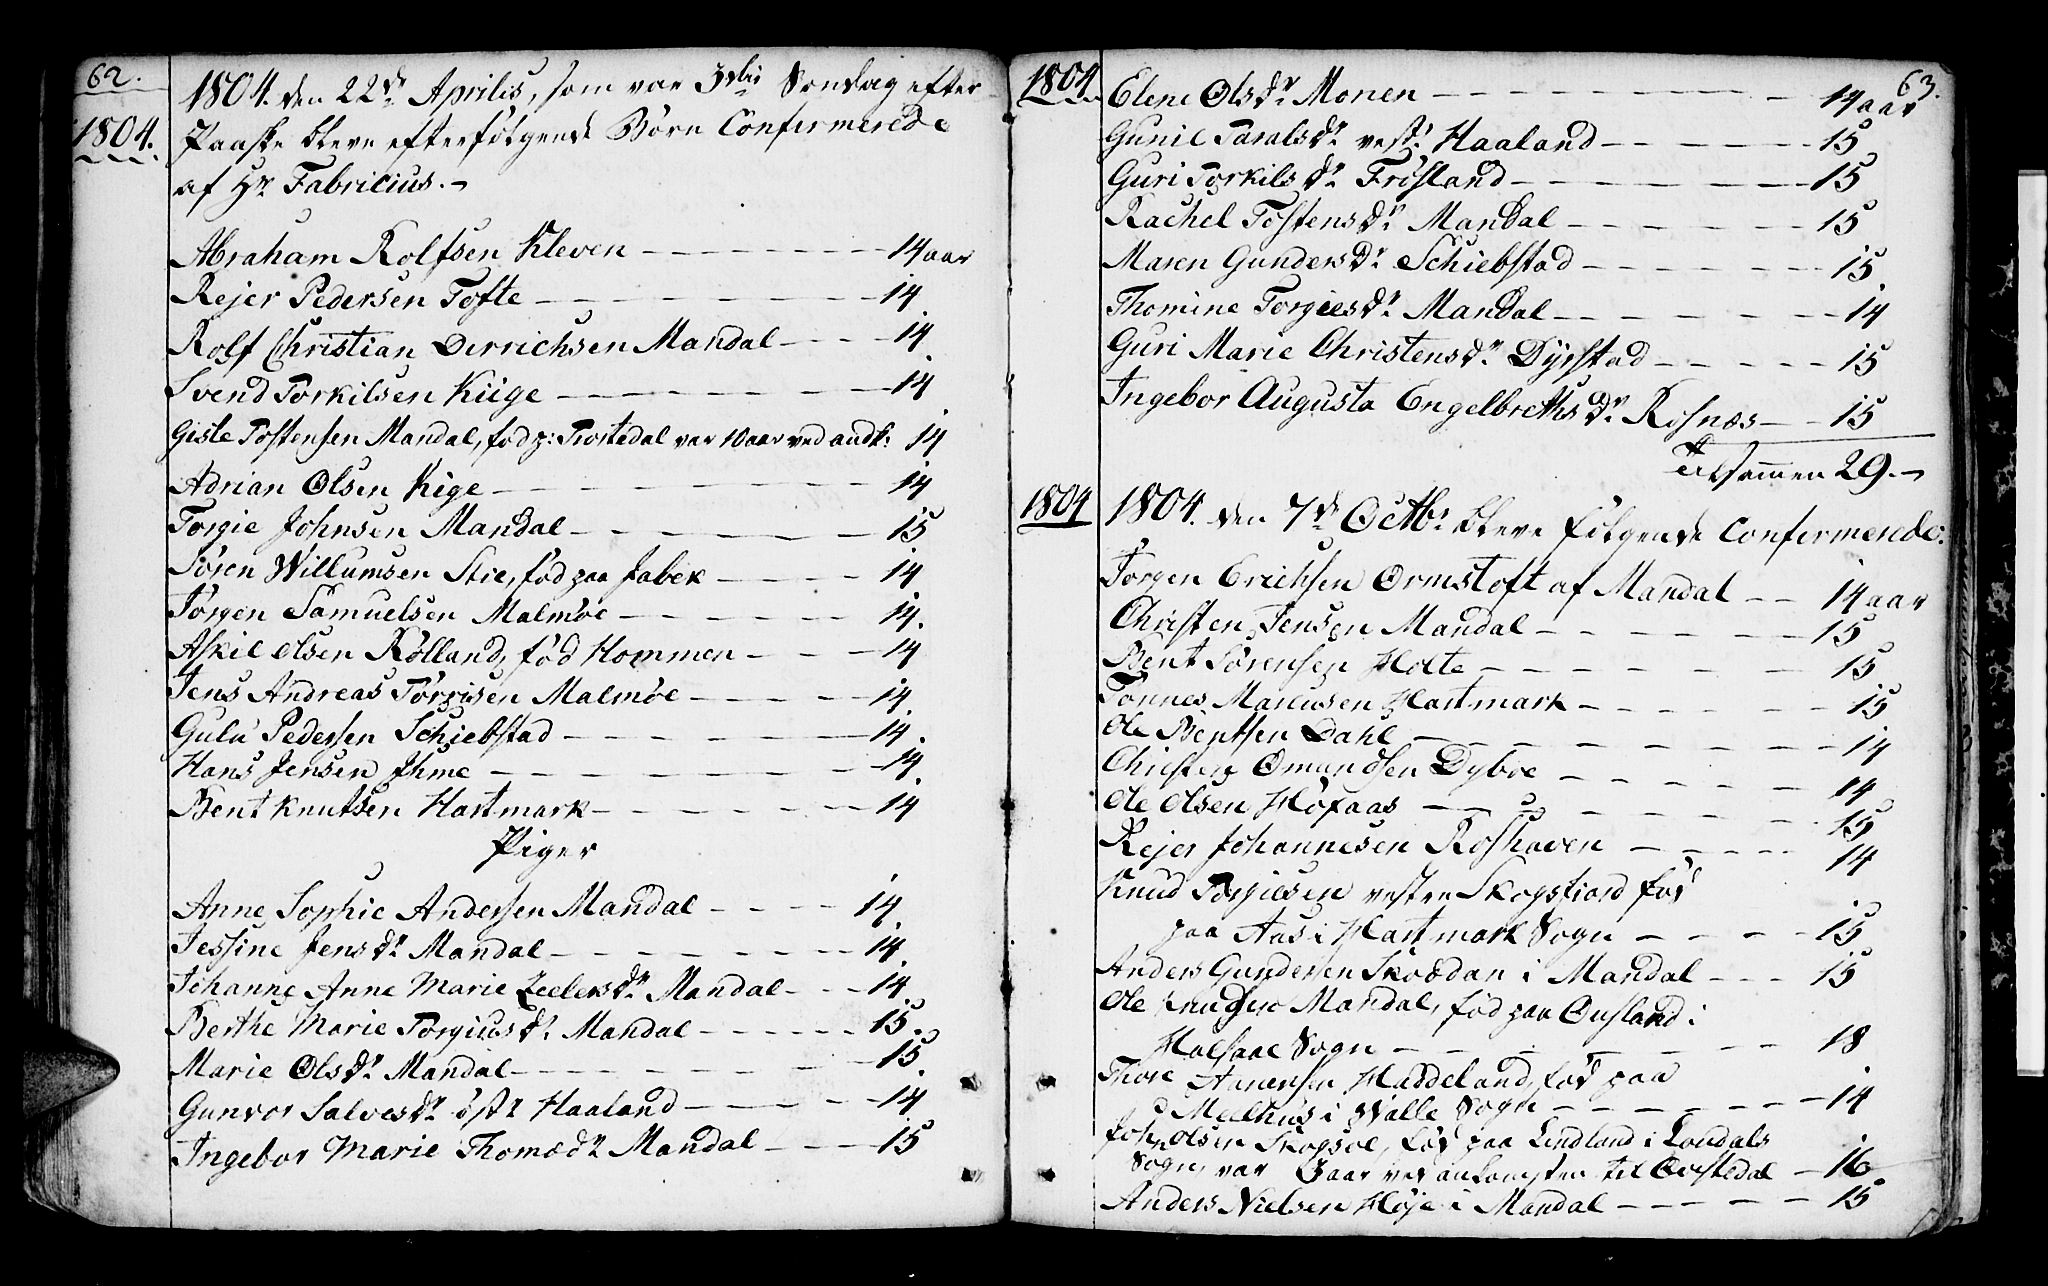 62.
1804.
1804. den 22de Aprilis, som var 3die Søndag efter
Paaske bleve efterfølgende Børn Confermerede
af Hr Fabricius.
Abraham Rolfsen Kleven 14 aar
Rejer Pedersen Tofte 14
Rolf Christian Dirrichsen Mandal 14
Svend Torkilsen Kiige 14
Gisle Tostensen Mandal, fød p: var 10 aar ved ankt: 14
Adrian Olsen Kige 14
Torgie Johnsen Mandal 15
Søren Willumsen Stie, fød paa Jabek 14
Jørgen Samuelsen Malmøe 14.
Askil Olsen Rølland, fød Hommen 14
Jens Andreas Tørrisen Malmøe 14.
Gulu Pedersen Schiebstad 14.
Hans Jensen Jhme 14.
Bent Knutsen Hartmark 14
Piger
Anne Sophie Andersen Mandal 14.
Jessine Jens Dr Mandal 14.
Johanne Anne Marie Zeelers Dr Mandal 14
Berthe Marie Torgius Dr Mandal 15.
Marie Ols Dr Mandal 15
Gunvor Salves Dr østr Haaland 14
Ingebor Marie Thomæ Dr Mandal 15
63.
1804
Elene Ols Dr Monen 14 aar
Gunil Tarals Dr vest: Haaland 15
Guri Torkils Dr Frøsland 15
Rachel Tostens Dr Mandal 15
Maren Gunders Dr Schiebstad 15
Thomine Torgies Dr Mandal 14
Guri Marie Christens Dr Dyrstad 15
Ingebor Augusta Engelbreths Dr Rosnæs 15
Tilsammen 29.
1804
1804. den 7de Octbr bleve følgende Confermerede:
Jørgen Erichsen Ormstoft af Mandal 14 aar
Christen Jensen Mandal 15
Bent Sørensen Holte 15
Tønnes Marcusen Hartmark 15
Ole Bentsen Dahl 14
Christen Omundsen Dyboe 14
Ole Olsen Høfaas 15
Rejer Johannesen Roshaven 14
Knud Torgiesen vestre Skogsfiord fød
paa Aas i Hartmark Sogn 15
Anders Gundersen Skoddan i Mandal 15
Ole Knudsen Mandal, fød paa Ousland i
Halsaae Sogn 18
Thore Aanensen Haddeland, fød paa
Meelhus i Walle Sogn 14
Joh. Olsen Skogsøe, fød paa Lindland i Londals
Sogn, var 3 aar ved ankomsten til 16
Anders Nielsen Høje i Mandal 15